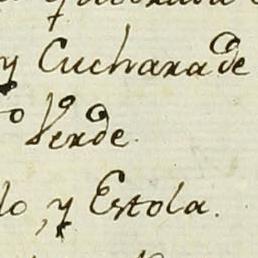 y Cuchara de
Verde.
lo, y Estola.